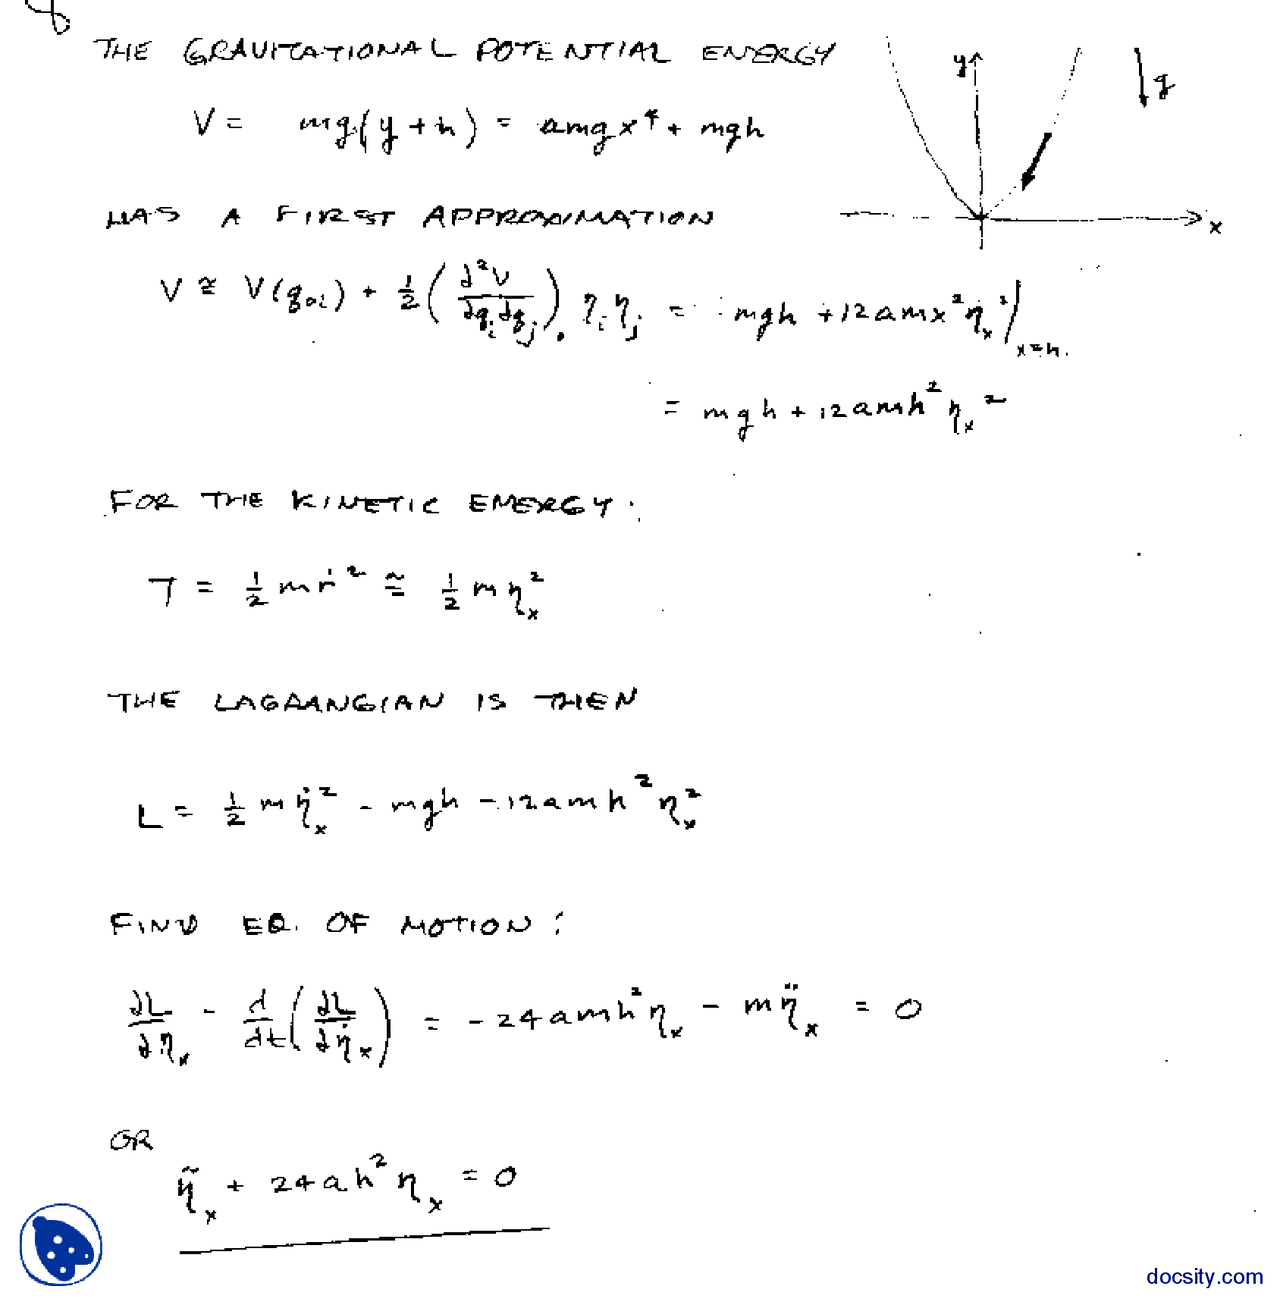 8
THE GRAVITATIONAL POTENTIAL ENERGY
V = mg(y+h) = amgx⁴ + mgh
y
g
x
HAS A FIRST APPROXIMATION
V ≅ V(q₀ᵢ) + 1/2 (∂²V/∂qᵢ∂qⱼ)₀ ηᵢ ηⱼ = mgh + 12amx²ηₓ²|ₓ₌ₕ.
= mgh + 12amh²ηₓ²
FOR THE KINETIC ENERGY:
T = 1/2 mṙ² ≅ 1/2 mηₓ²
THE LAGRANGIAN IS THEN
L = 1/2 mη̇ₓ² - mgh - 12amh²ηₓ²
FIND EQ. OF MOTION:
∂L/∂ηₓ - d/dt(∂L/∂η̇ₓ) = -24amh²ηₓ - mη̈ₓ = 0
OR
η̈ₓ + 24ah²ηₓ = 0
docsity.com